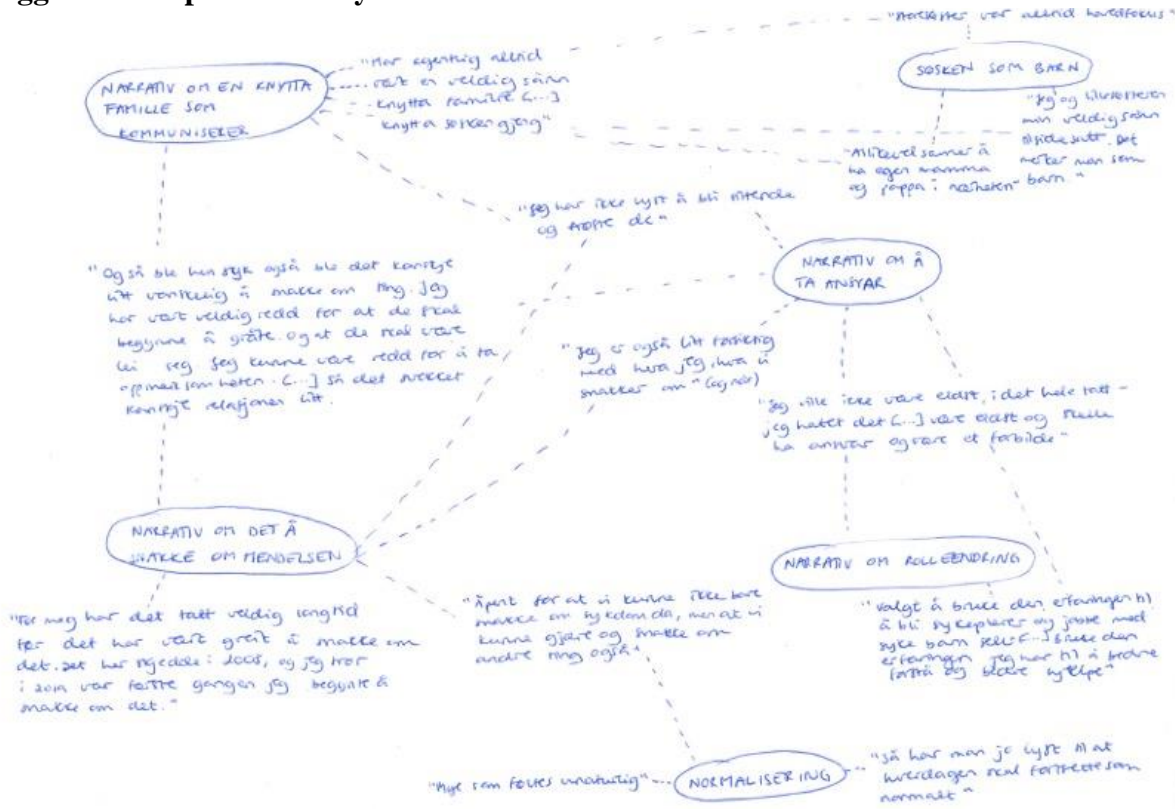 "Storesøster var alltid hovedfokus"
NARRATIV OM EN KNYTTA
FAMILIE SOM
KOMMUNISERER
"Har egentlig alltid
vært en veldig sånn
knytta familie [...]
knytta søskengjeng"
SØSKEN SOM BARN
"Jeg og lillesøsteren
min veldig sånn
tilsidesatt. Det
merker man som
barn."
"Allikevel savner å
ha egen mamma
og pappa i nærheten"
"Jeg har ikke lyst å bli sittende
og støte de"
NARRATIV OM Å
TA ANSVAR
"Og så ble hun syk også ble det kanskje
litt vanskelig å snakke om ting. Jeg
har vært veldig redd for at de skal
begynne å gråte. Og at de skal være
lei seg. Jeg kunne være redd for å ta
oppmerksomheten. [...] så det svekket
kanskje relasjonen litt.
"Jeg er også litt forsiktig
med hva jeg, hva vi
snakker om" (og når)
"Jeg ville ikke være eldst, i det hele tatt -
jeg hatet det [...] være eldst og skulle
ha ansvar og være et forbilde"
NARRATIV OM DET Å
SNAKKE OM HENDELSEN
NARRATIV OM ROLLEENDRING
"For meg har det tatt veldig lang tid
før det har vært greit å snakke om
det. Det her skjedde i 2005, og jeg tror
i var første gangen jeg begynte å
snakke om det."
"Åpent for at vi kunne ikke bare
snakke om sykdom da, men at vi
kunne gjøre og snakke om
andre ting også"
"Valgt å bruke den erfaringen til
å bli sykepleier og jobbe med
syke barn selv [...] bruke den
erfaringen jeg har til å bedre
forstå og bedre hjelpe"
"Mye som føltes unaturlig"
NORMALISERING
"Så har man jo lyst til at
hverdagen skal fortsette som
normalt"